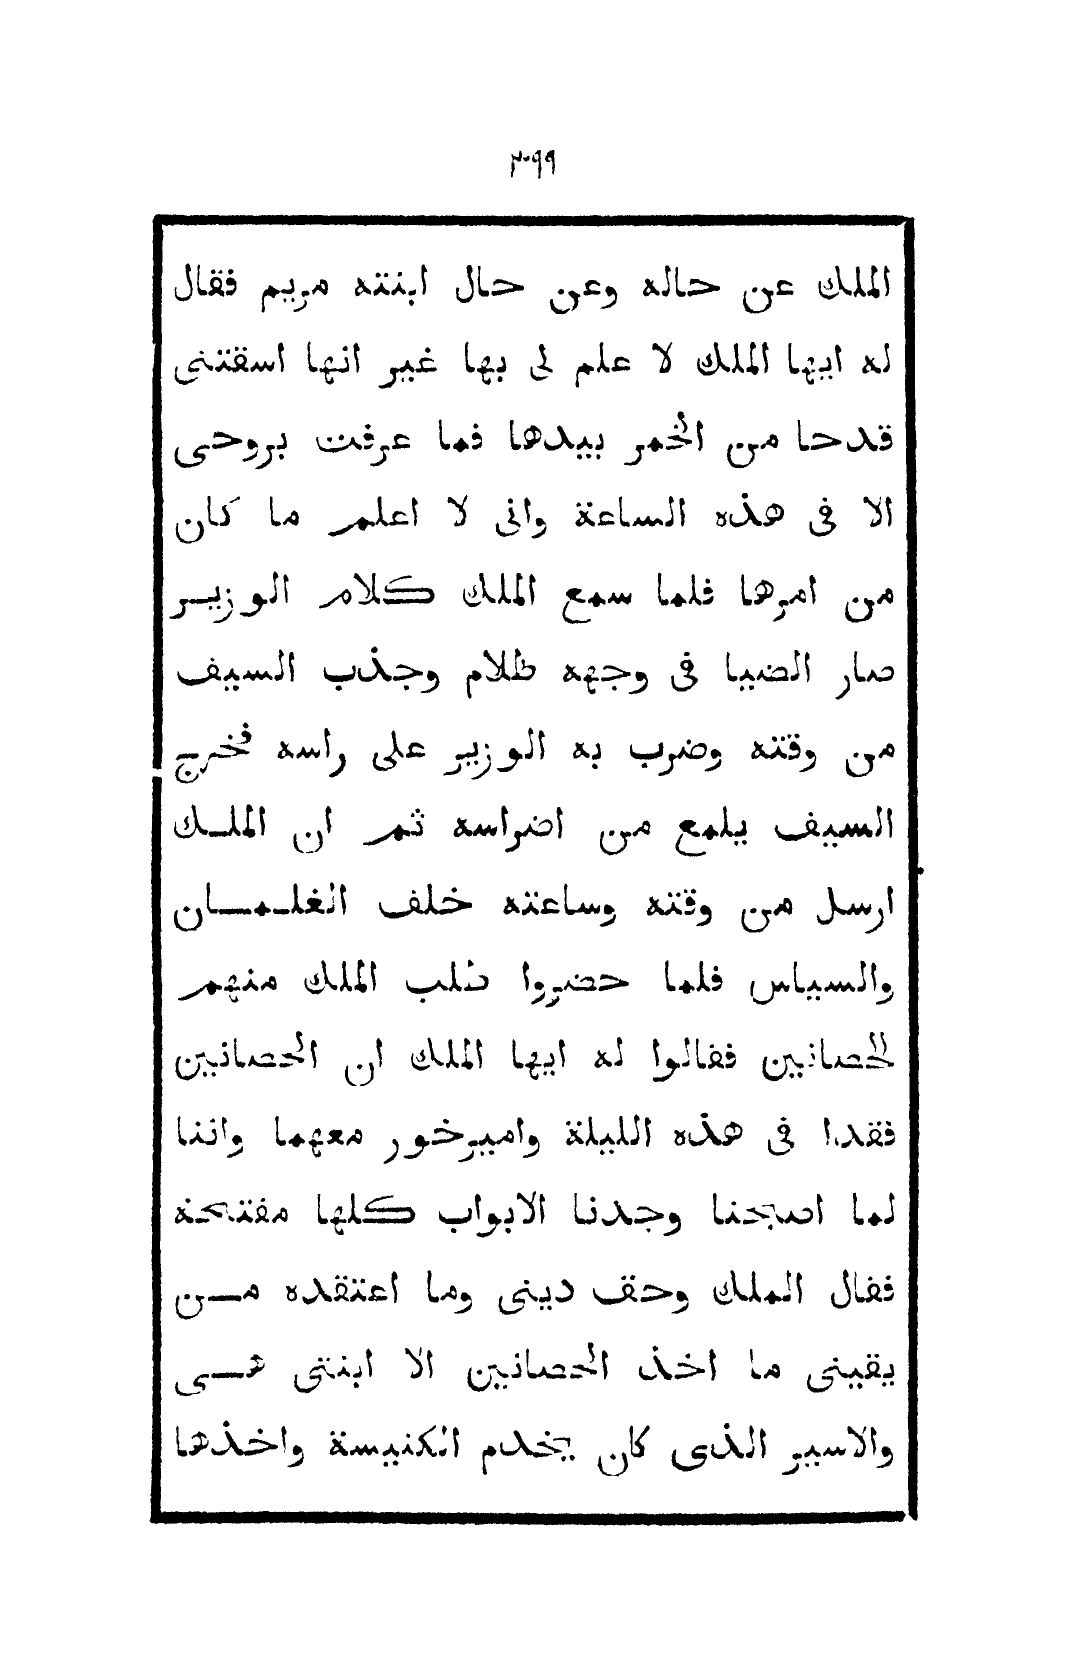 ٣٩٩
الملك عن حاله وعن حال ابنته مريم فقال
له ايها الملك لا علم لى بها غير انها اسقتنى
قدحا من الخمر بيدها فما عرفت بروحى
الا فى هذه الساعة وانى لا اعلم ما كان
من امرها فلما سمع الملك كلام الوزير
صار الضيا فى وجهه ظلام وجذب السيف
من وقته وضرب به الوزير على راسه فخرج
السيف يلمع من اضراسه ثم ان الملك
ارسل من وقته وساعته خلف الغلمان
والسياس فلما حضروا طلب الملك منهم
الحصانين فقالوا له ايها الملك ان الحصانين
فقدا فى هذه الليلة واميرخور معهما واننا
لما اصبحنا وجدنا الابواب كلها مفتحة
فقال الملك وحق دينى وما اعتقده من
يقينى ما اخذ الحصانين الا ابنتى هى
والاسير الذى كان يخدم الكنيسة واخذها